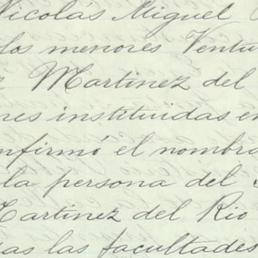 Nicolás Miguel
los menores Ventu
Martinez del
res instituidas en
nfirmó el nombra
la persona del
Martinez del Rio
sas las facultades